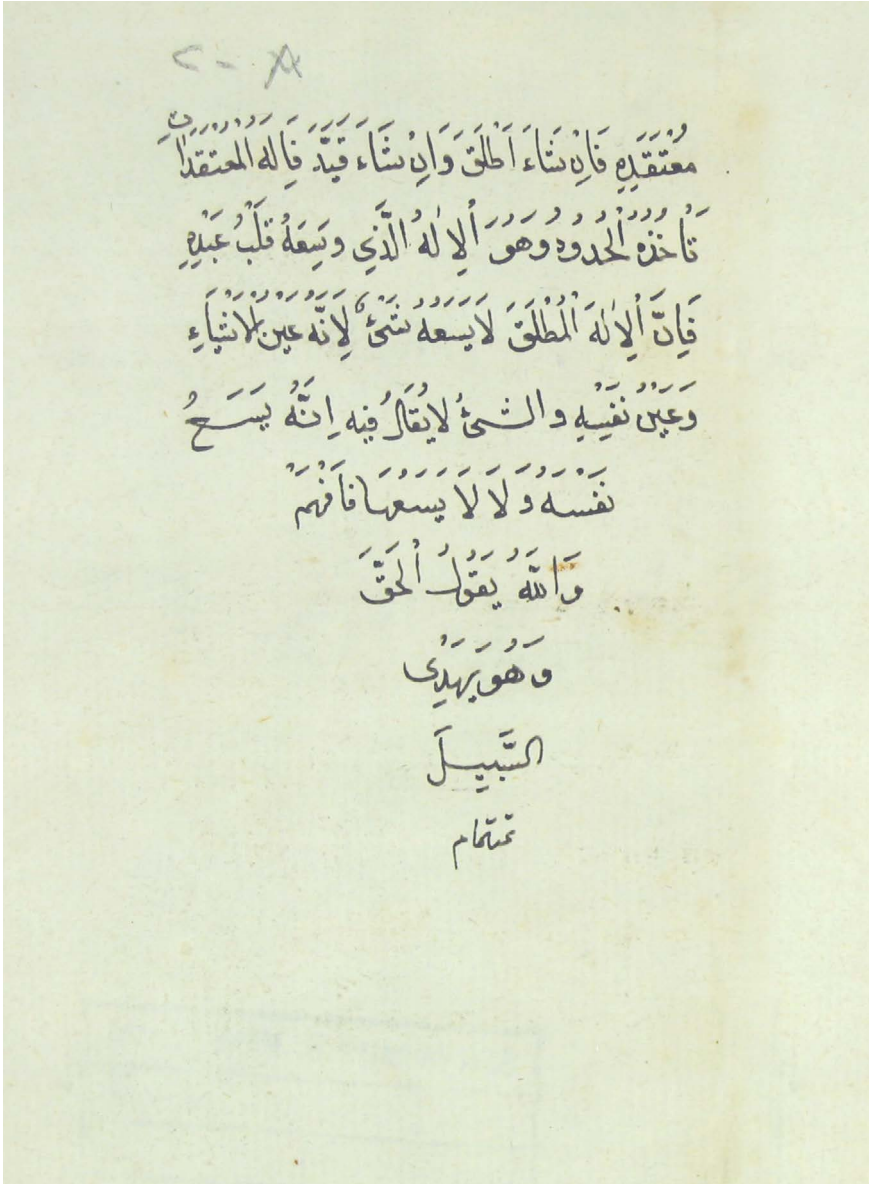 مُعْتَقَدِهِ فَاِنْ شَاءَ اَطْلَقَ وَاِنْ شَاءَ قَيَّدَ فَاِلَهُ الْمُعْتَقَدَاتِ
تَأْخُذُهُ الْحُدُودُ وَهُوَ الْاِلٰهُ الَّذِي وَسِعَهُ قَلْبُ عَبْدِهِ
فَاِنَّ الْاِلٰهَ الْمُطْلَقَ لَا يَسَعُهُ شَىْءٌ لِاَنَّهُ عَيْنُ الْاَشْيَاءِ
وَعَيْنُ نَفْسِهِ والشىءُ لا يُقَالُ فيه اِنَّهُ يَسَعُ
نَفْسَهُ وَلَا لَا يَسَعُهَا فَافْهَمْ
وَاللهُ يَقُولُ الْحَقَّ
وَهُوَ يَهْدِى
السَّبِيلَ
تمتمام